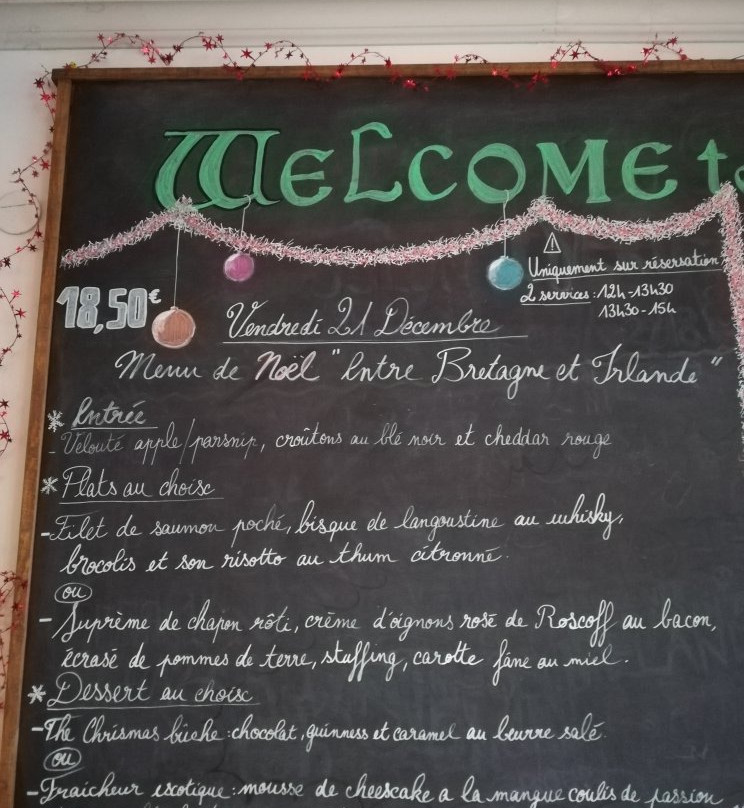 WELCOME to
⚠
Uniquement sur réservation
2 services : 12h-13h30
13h30 - 15h
18,50€
Vendredi 21 Décembre
Menu de Noël "Entre Bretagne et Irlande"
* Entrée
- Velouté apple/parsnip, croûtons au blé noir et cheddar rouge
* Plats au choise
- Filet de saumon poché, bisque de langoustine au whisky,
brocolis et son risotto au thum citronné.
ou
- Suprème de chapon rôti, crème d'oignons rosé de Roscoff au bacon,
écrasé de pommes de terre, stuffing, carotte fâne au miel.
* Dessert au choise
- The Chrismas bûche : chocolat, guinness et caramel au beurre salé.
ou
- Fraicheur exotique : mousse de cheescake a la mangue coulis de passion